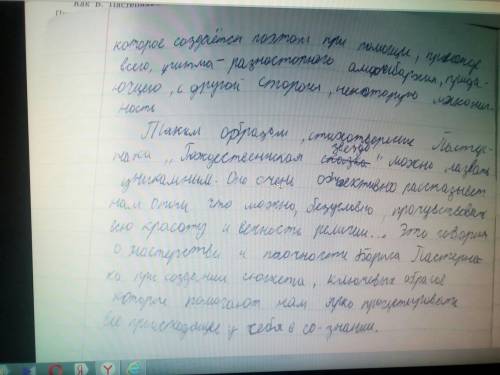 Как Б. Пастернак
которое создаётся поэтом при помощи, прежде
всего, ритма - разностопного амфибрахия, прида-
ющего, с другой стороны, некоторую
ность
Таким образом, стихотворение Пастер-
нака „Рождественская сказка звезда" можно назвать
уникальным. Оно очень объективно рассказывает
нам о том что можно, безусловно, прочувствовать
всю красоту и вечность религии... Это говорит
о мастерстве и Бориса Пастерна-
ка при создании сюжета, ключевых образов
которые помогают нам ярко
всё происходящее у себя в со-знании.